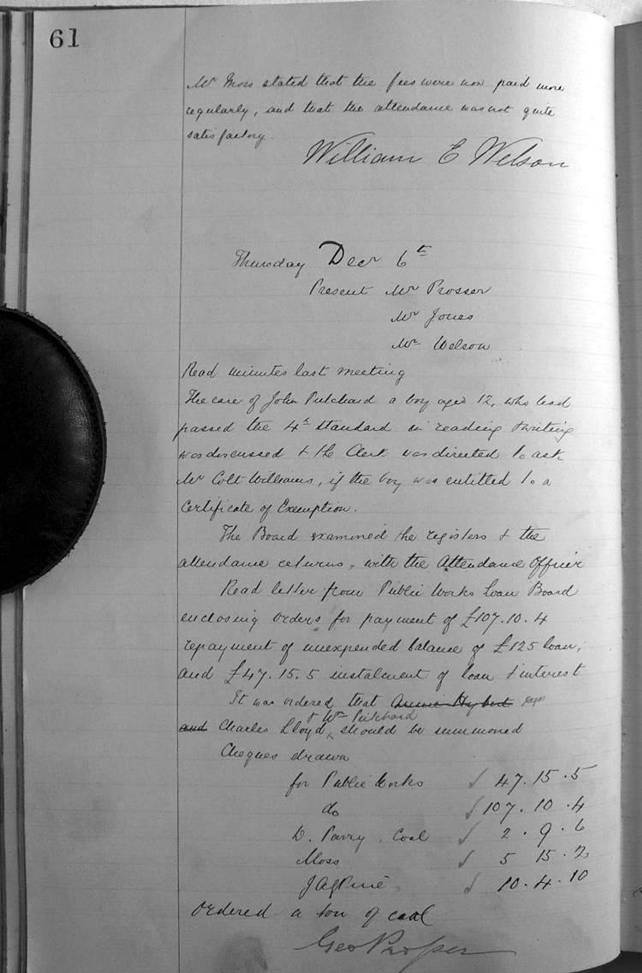 61
Mr Moss stated that the fees were now paid more
regularly, and that the attendance was not quite
satisfactory.
William E Welson
Thursday Decr 6th
Present Mr Prosser
Mr Jones
Mr Welson
Read minutes last meeting
The case of John Pritchard a boy aged 12, who had
passed the 4th Standard in reading & writing
was discussed & the Clerk was directed to ask
Mr Colt Williams, if the boy was entitled to a
Certificate of Exemption.
The Board examined the registers & the
attendance returns, with the Attendance Officer
Read letter from Public Works Loan Board
enclosing orders for payment of £107.10.4
repayment of unexpended balance of £125 loan,
and £47.15.5 instalment of loan & interest
It was ordered that
and Charles Lloyd & Wm Pritchard should be summoned
Cheques drawn
for Public Works £ 47.15.5
do £107.10.4
D. Parry. Coal £ 2.9.6
Moss £ 5 15.
£ 10.4.10
Ordered a ton of coal
Geo Prosser